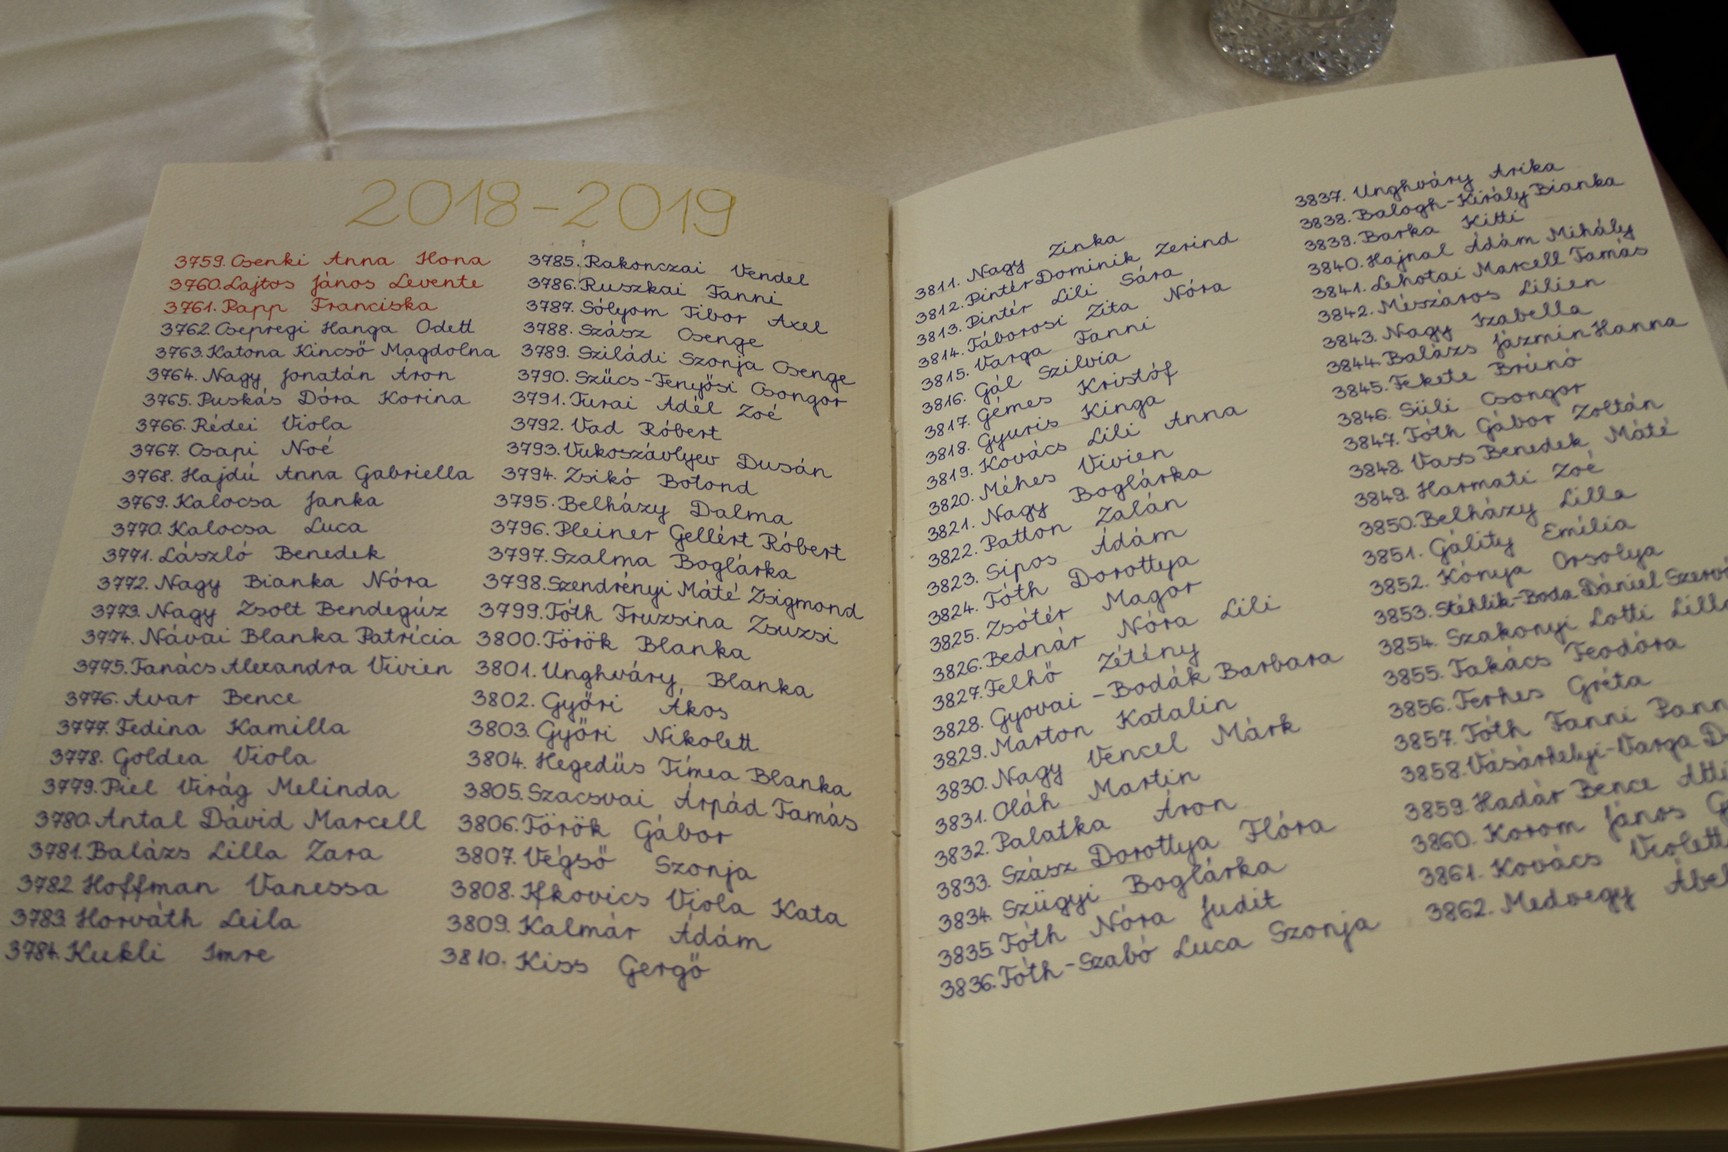 2018-2019
3759. Csenki Anna Ilona
3760. Lajtos János Levente
3761. Papp Franciska
3762. Csepregi Hanga Odett
3763. Katona Kincső Magdolna
3764. Nagy Jonatán Áron
3765. Puskás Dóra Korina
3766. Rédei Viola
3767. Csapi Noé
3768. Hajdú Anna Gabriella
3769. Kalocsa Janka
3770. Kalocsa Luca
3771. László Benedek
3772. Nagy Bianka Nóra
3773. Nagy Zsolt Bendegúz
3774. Návai Blanka Patrícia
3775. Tanács Alexandra Vivien
3776. Avar Bence
3777. Fedina Kamilla
3778. Goldea Viola
3779. Piel Virág Melinda
3780. Antal Dávid Marcell
3781. Balázs Lilla Zara
3782 Hoffman Vanessa
3783. Horváth Leila
3784. Kukli Imre
3785. Rakonczai Vendel
3786. Ruszkai Fanni
3787. Sólyom Tibor Axel
3788. Szász Csenge
3789. Sziládi Szonja Csenge
3790. Szűcs-Fenyősi Csongor
3791. Turai Adél Zoé
3792. Vad Róbert
3793. Vukoszávlyev Dusán
3794. Zsikó Botond
3795. Belházy Dalma
3796. Pleiner Gellért Róbert
3797. Szalma Boglárka
3798. Szendrényi Máté Zsigmond
3799. Tóth Fruzsina Zsuzsi
3800. Török Blanka
3801. Unghváry Blanka
3802. Győri Ákos
3803. Győri Nikolett
3804. Hegedűs Tímea Blanka
3805. Szacsvai Árpád Tamás
3806. Török Gábor
3807. Végső Szonja
3808. Ifkovics Viola Kata
3809. Kalmár Ádám
3810. Kiss Gergő
3811. Nagy Zinka
3812. Pintér Dominik Zerind
3813. Pintér Lili Sára
3814. Táborosi Zita Nóra
3815. Varga Fanni
3816. Gál Szilvia
3817. Gémes Kristóf
3818. Gyuris Kinga
3819. Kovács Lili Anna
3820. Méhes Vivien
3821. Nagy Boglárka
3822. Patton Zalán
3823. Sipos Ádám
3824. Tóth Dorottya
3825. Zsótér Magor
3826. Bednár Nóra Lili
3827. Felhő Zétény
3828. Gyovai-Bodák Barbara
3829. Marton Katalin
3830. Nagy Vencel Márk
3831. Oláh Martin
3832. Palatka Áron
3833. Szász Dorottya Flóra
3834. Szűgyi Boglárka
3835. Tóth Nóra Judit
3836. Tóth-Szabó Luca Szonja
3837. Unghváry Arika
3838. Balogh-Király Bianka
3839. Barka Kitti
3840. Hajnal Ádám Mihály
3841. Lehotai Marcell Tamás
3842. Mészáros Lilien
3843. Nagy Izabella
3844. Balázs Jázmin Hanna
3845. Fekete Brúnó
3846. Süli Csongor
3847. Tóth Gábor Zoltán
3848. Vass Benedek Máté
3849. Harmati Zoé
3850. Belházy Lilla
3851. Gálity Emília
3852. Kónya Orsolya
3853. Stéhlik-Boda Dániel
3854. Szakonyi Lotti
3855. Takács Teodóra
3856. Terhes Gréta
3857. Tóth Fanni
3858. Vásárhelyi-Varga
3859. Hadár Bence
3860. Korom János
3861. Kovács
3862. Medvegy